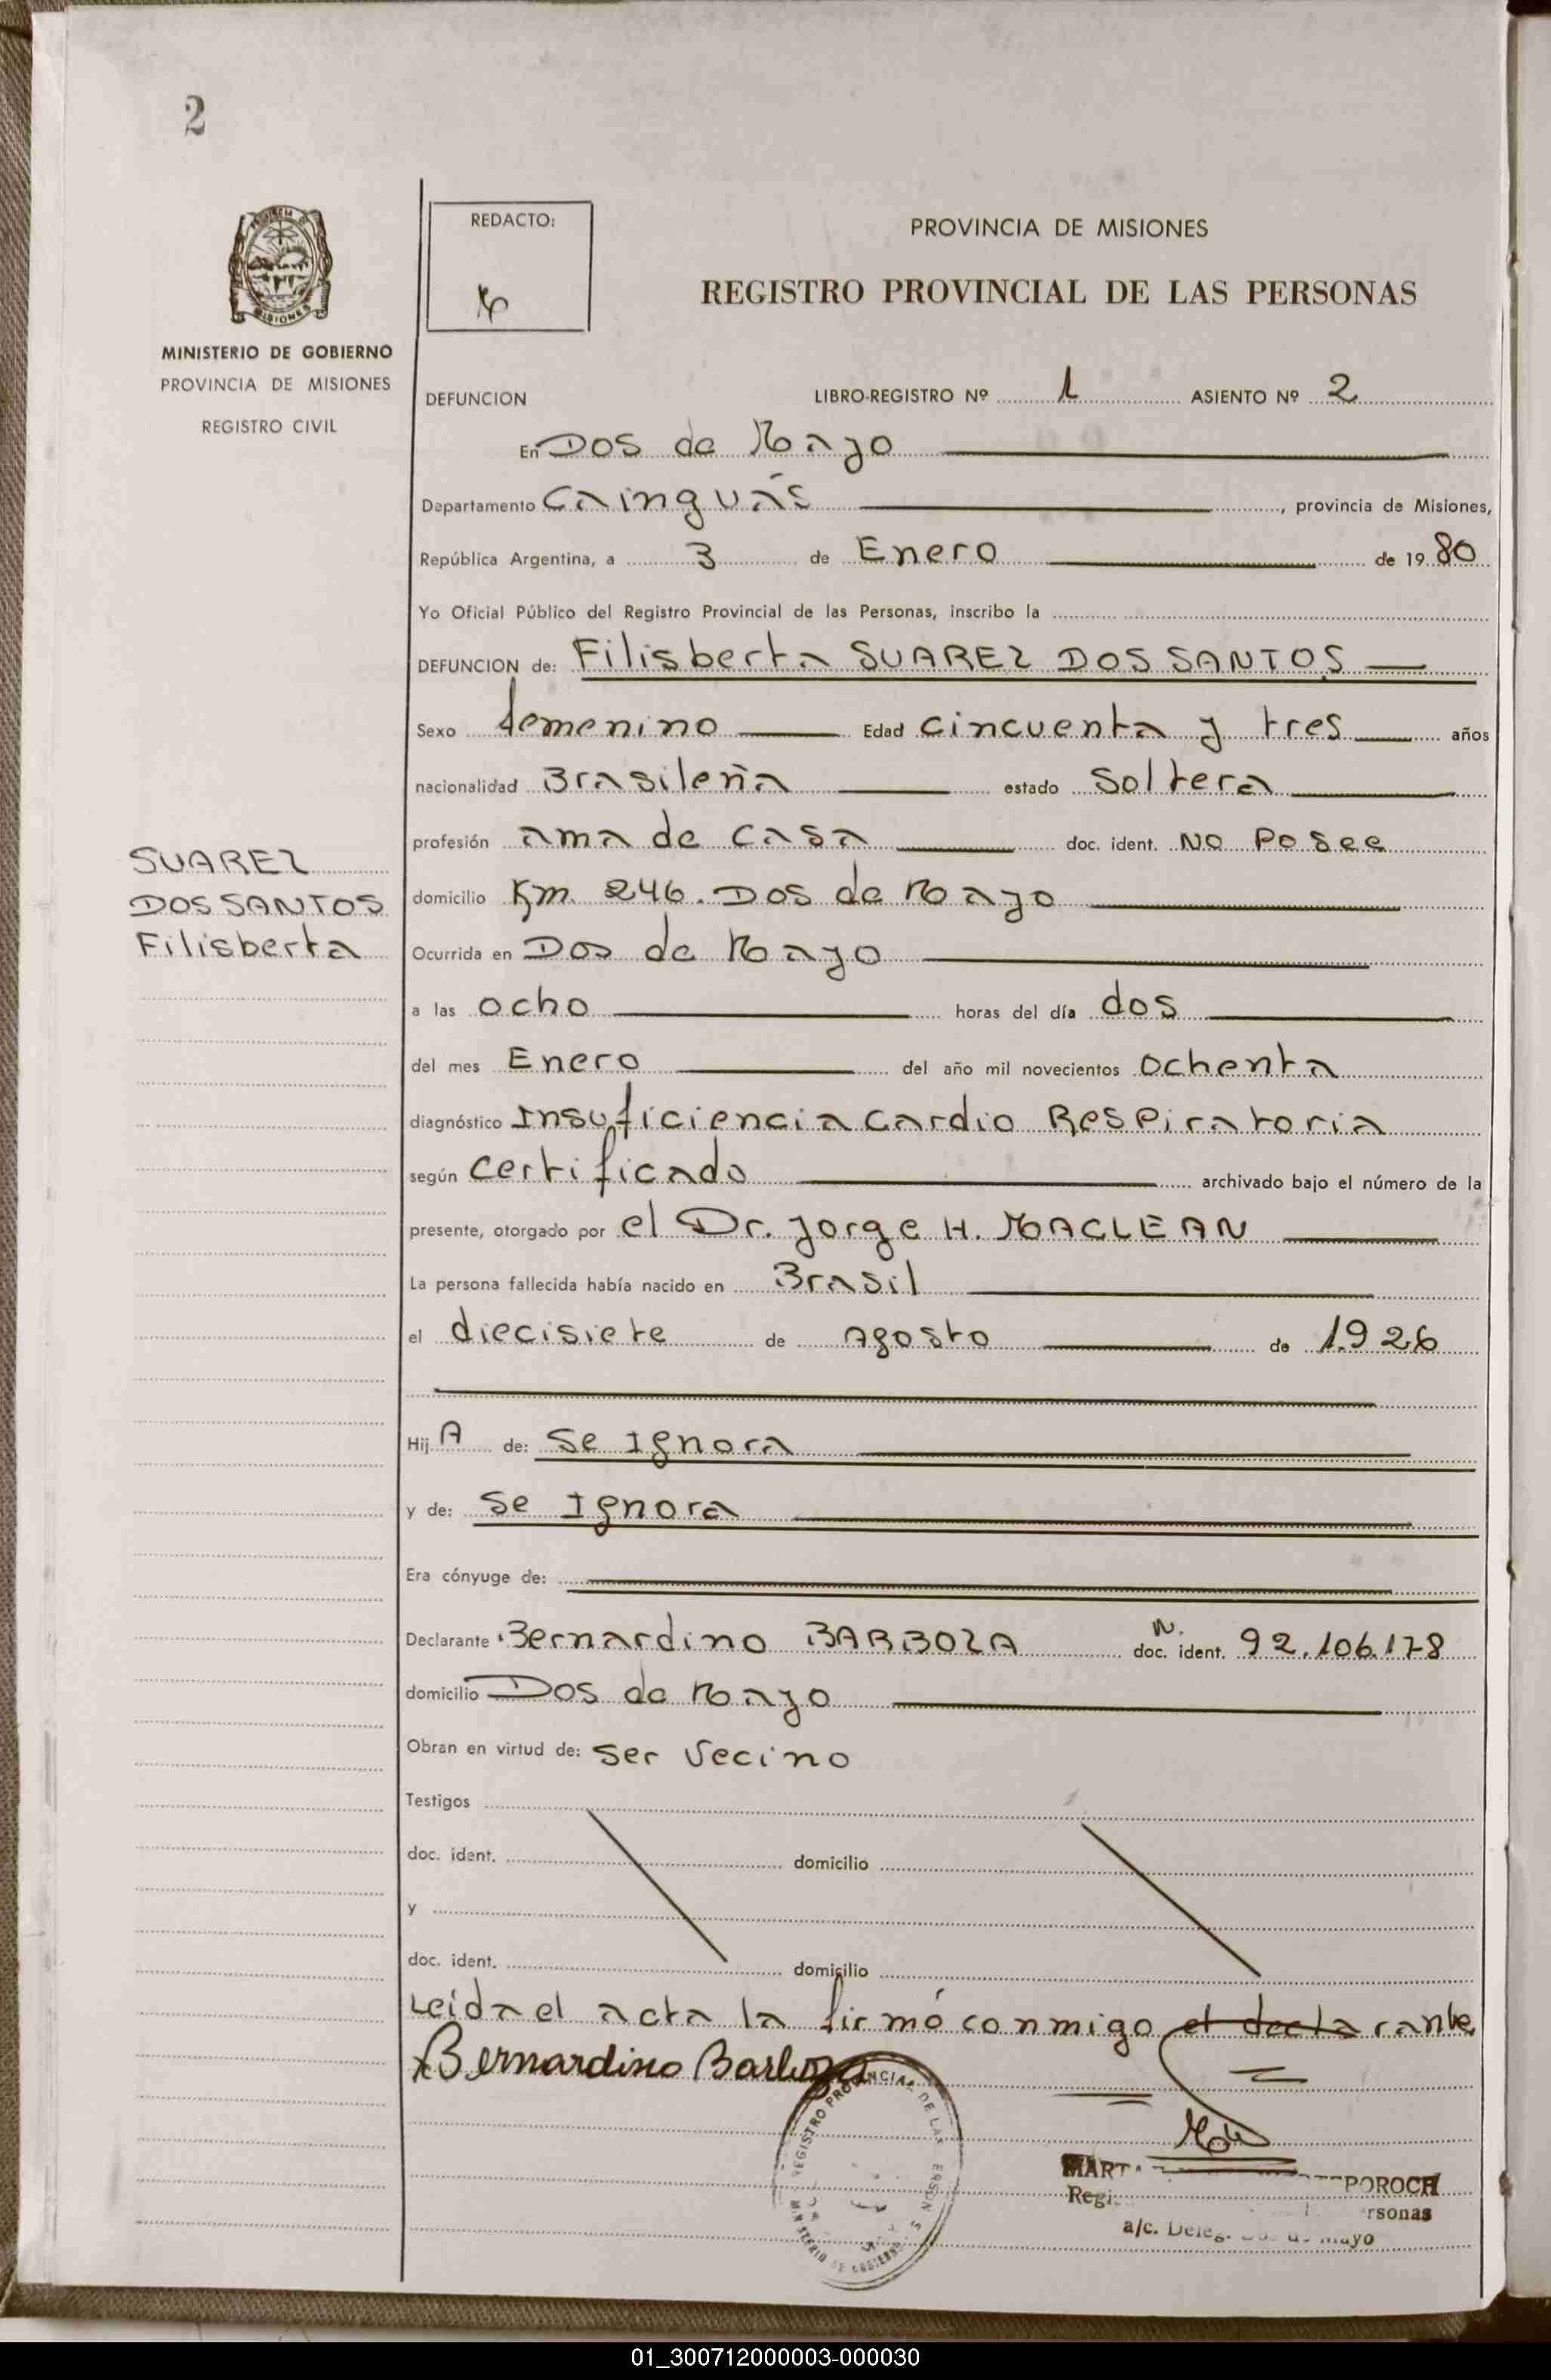 2
PROVINCIA DE MISIONES
MINISTERIO DE GOBIERNO
PROVINCIA DE MISIONES
REGISTRO CIVIL
REDACTO:
PROVINCIA DE MISIONES
REGISTRO PROVINCIAL DE LAS PERSONAS
DEFUNCION LIBRO-REGISTRO Nº 1 ASIENTO Nº 2
En Dos de Mayo
Departamento Cainguás, provincia de Misiones,
República Argentina, a 3 de Enero de 1980
Yo Oficial Público del Registro Provincial de las Personas, inscribo la
DEFUNCION de: Filisberta SUAREZ DOS SANTOS
Sexo femenino Edad cincuenta y tres años
nacionalidad Brasileña estado Soltera
profesión ama de casa doc. ident. No Posee
SUAREZ
DOS SANTOS
Filisberta
domicilio Km. 246. Dos de Mayo
Ocurrida en Dos de Mayo
a las ocho horas del día dos
del mes Enero del año mil novecientos ochenta
diagnóstico Insuficiencia Cardio Respiratoria
según certificado archivado bajo el número de la
presente, otorgado por el Dr. Jorge H. MACLEAN
La persona fallecida había nacido en Brasil
el diecisiete de Agosto de 1.926
Hij A de: Se Ignora
y de: Se Ignora
Era cónyuge de:
Declarante Bernardino BARBOZA N. doc. ident. 92.106.178
domicilio Dos de Mayo
Obran en virtud de: ser vecino
Testigos
doc. ident. domicilio
y
doc. ident. domicilio
Leida el acta la firmó conmigo el declarante
Bernardino Barboza
REGISTRO PROVINCIAL DE LAS
MINISTERIO DE GOBIERNO
MART POROCH
Regi rsonas
a/c. Deleg. Mayo
01_300712000003-000030